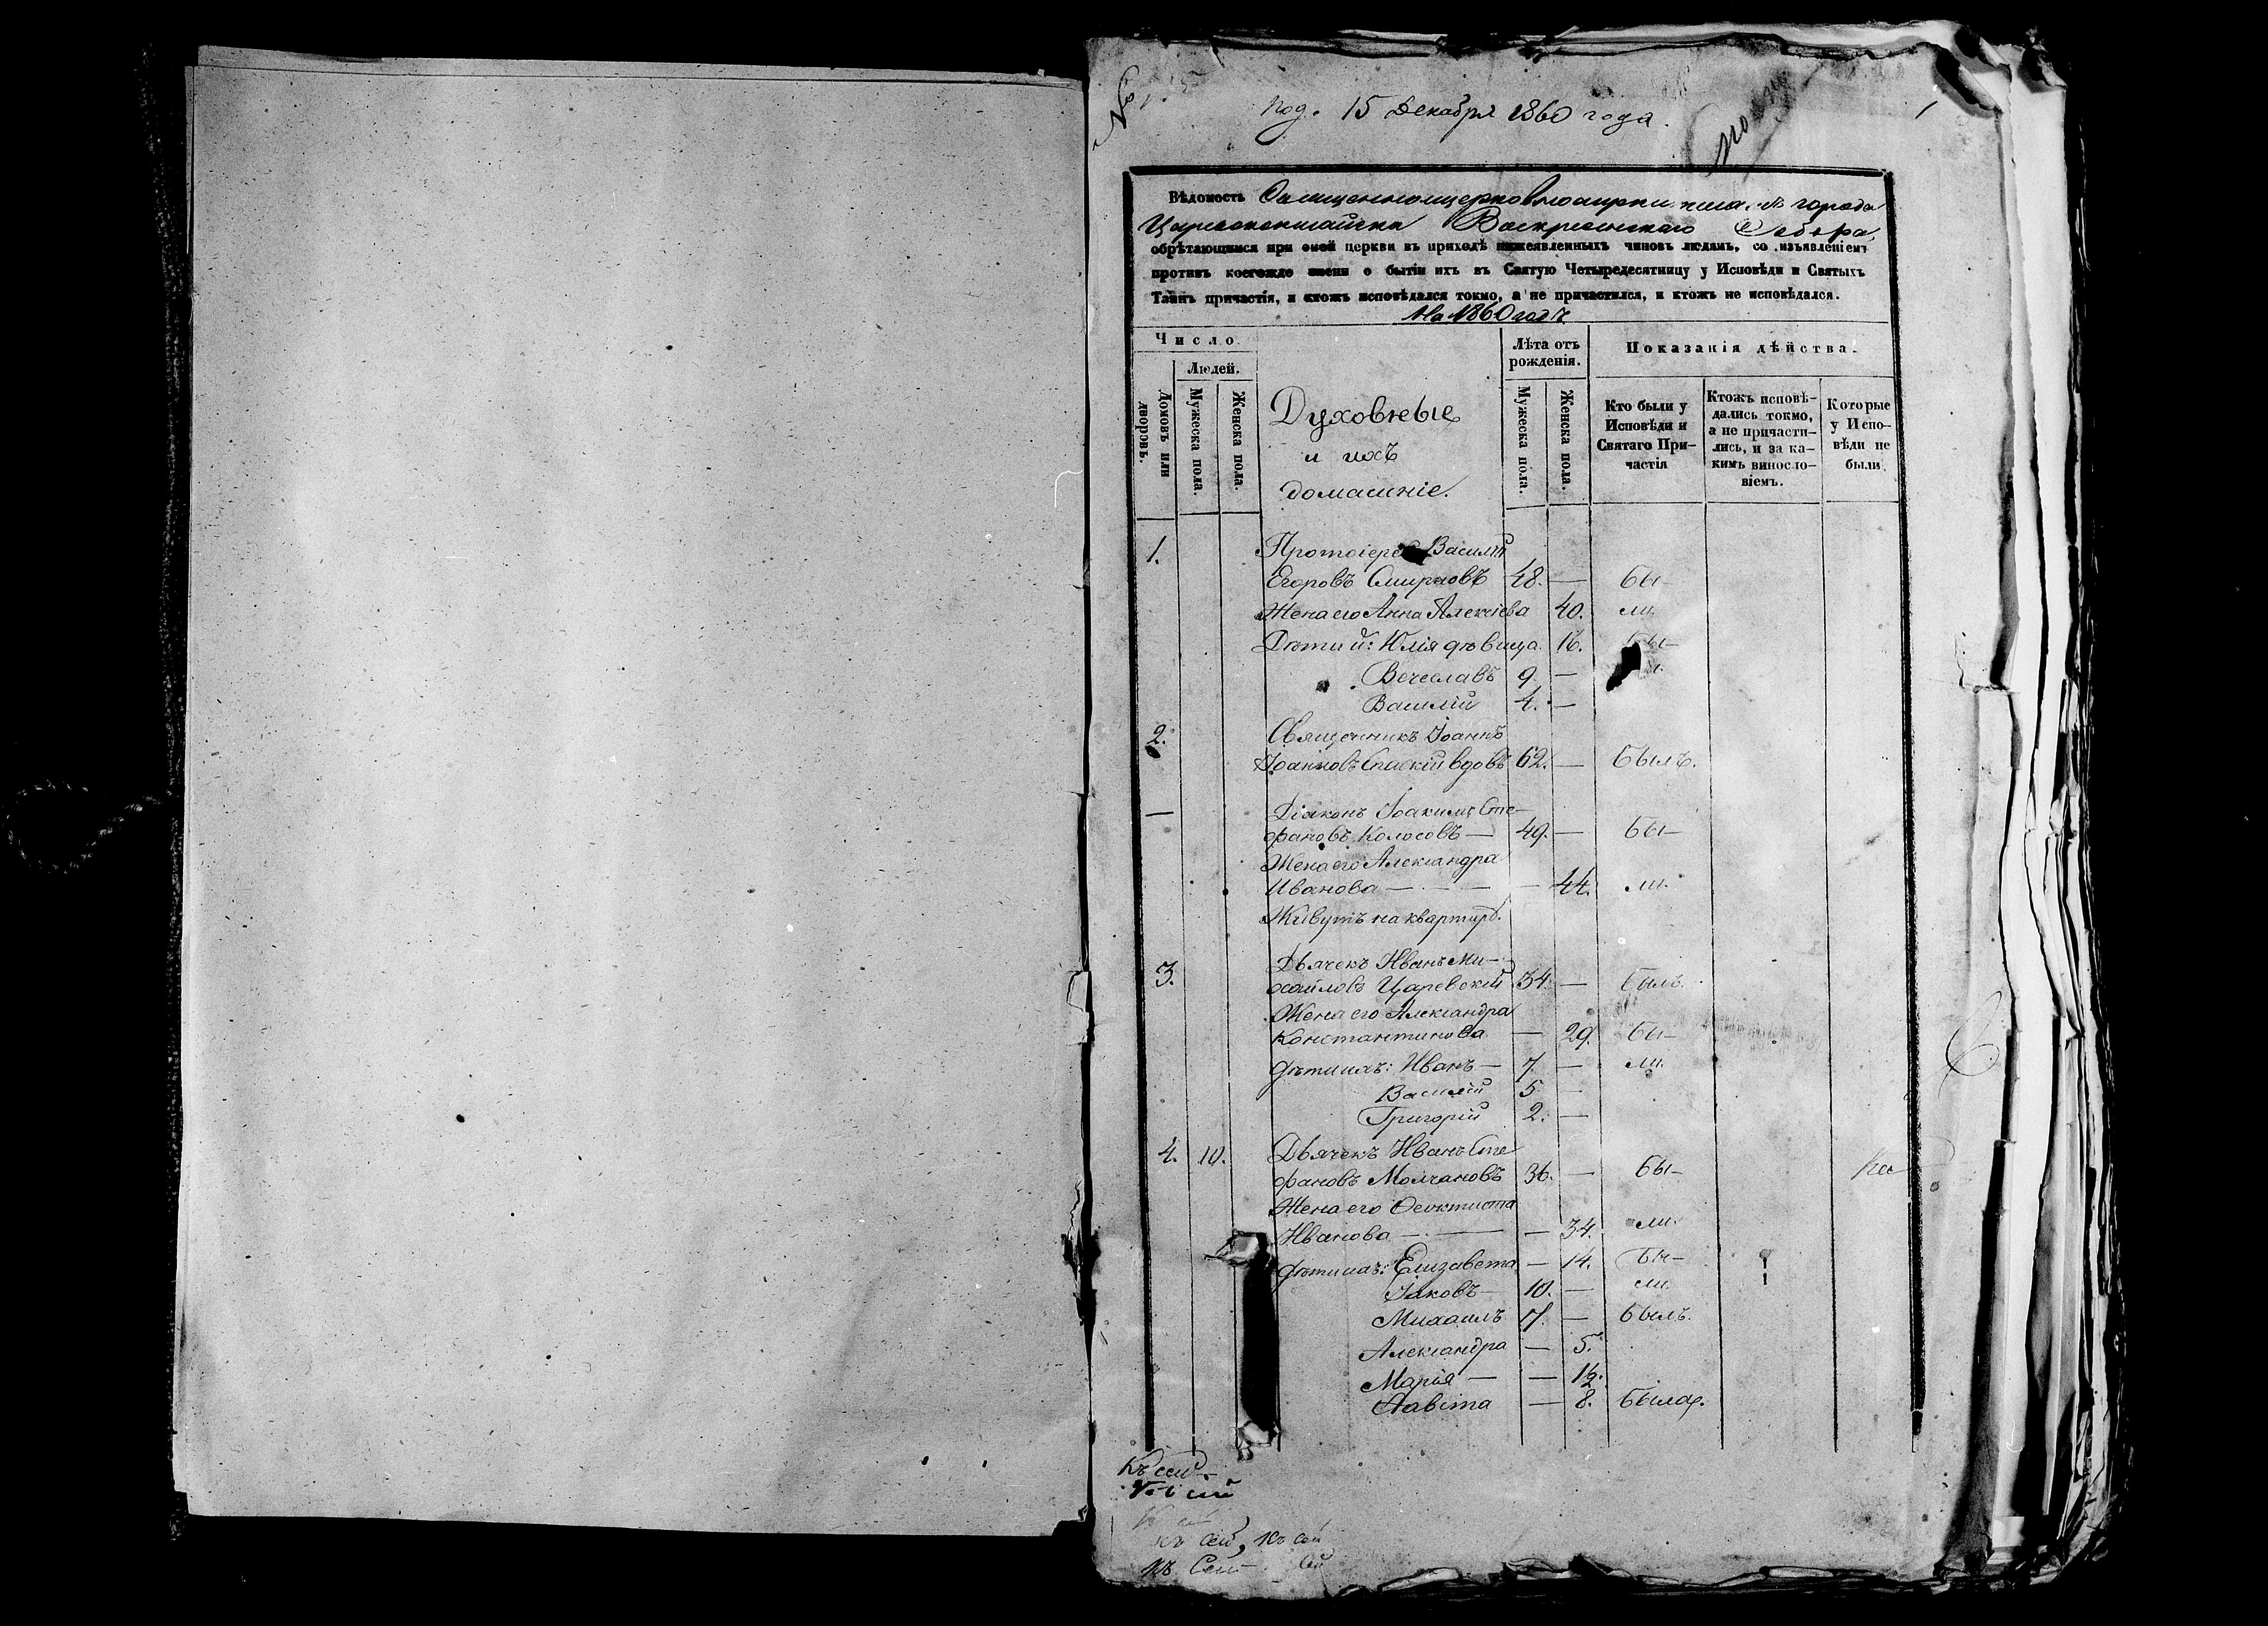 №
Под. 15 Декабря 1860 года.
Вѣдомость Священноцерковнослужителей города
Царевококшайска Воскресенскаго Собора,
обрѣтающимся при оной церкви въ приходѣ нижеявленныхъ чиновъ людямъ, со изъявленіемъ
противъ коегождо имени о бытіи ихъ въ Святую Четыредесятницу у Исповѣди и Святыхъ
Таинъ причастія, и ктожъ исповѣдался токмо, а не причастился, и ктожъ не исповѣдался.
На 1860 годъ
Число
Людей.
Домовъ или дворовъ.
Мужеска пола.
Женска пола.
Духовные
и ихъ
домашніе.
Лѣта отъ рожденія.
Мужеска пола.
Женска пола.
Показанія дѣйства.
Кто были у Исповѣди и Святаго При-частія
Ктожъ исповѣ-дались токмо, а не причасти-лись, и за ка-кимъ винословіемъ.
Которые у Испо-вѣди не были.
1. Протоіерей Василій
Егоровъ Смирновъ 48. — бы-
Жена его Анна Алексіева 40. ли.
Дѣти и: Юлія дѣвица 16. бы-
Вечеславъ 9. — ли.
Василій 4. —
2. Священникъ Іоаннъ
Іоанновъ Спаскій вдовъ 62. — былъ.
— Діяконъ Іоакимъ Сте-
фановъ Колосовъ — 49. — бы-
Жена его Александра
Иванова — — — — 44. ли.
Живутъ на квартирѣ.
3. Дьячекъ Иванъ Ми-
хайловъ Царевскій 34. — былъ.
Жена его Александра
Константинова — 29. бы-
Дѣти ихъ: Иванъ — 7. — ли.
Василій 5. —
Григорій 2. —
4. 10. Дьячекъ Иванъ Сте
фановъ Молчановъ 36. — бы-
Жена его Феоктиста
Иванова — — — 34. ли.
Дѣти ихъ: Елизавета — 14. бы-
Іаковъ — 10. — ли.
Михаилъ 7. — былъ.
Александра — 5.
Марія — — 1½.
— 8. была.
Къ сей
къ сей, къ сей
къ Сей Сей